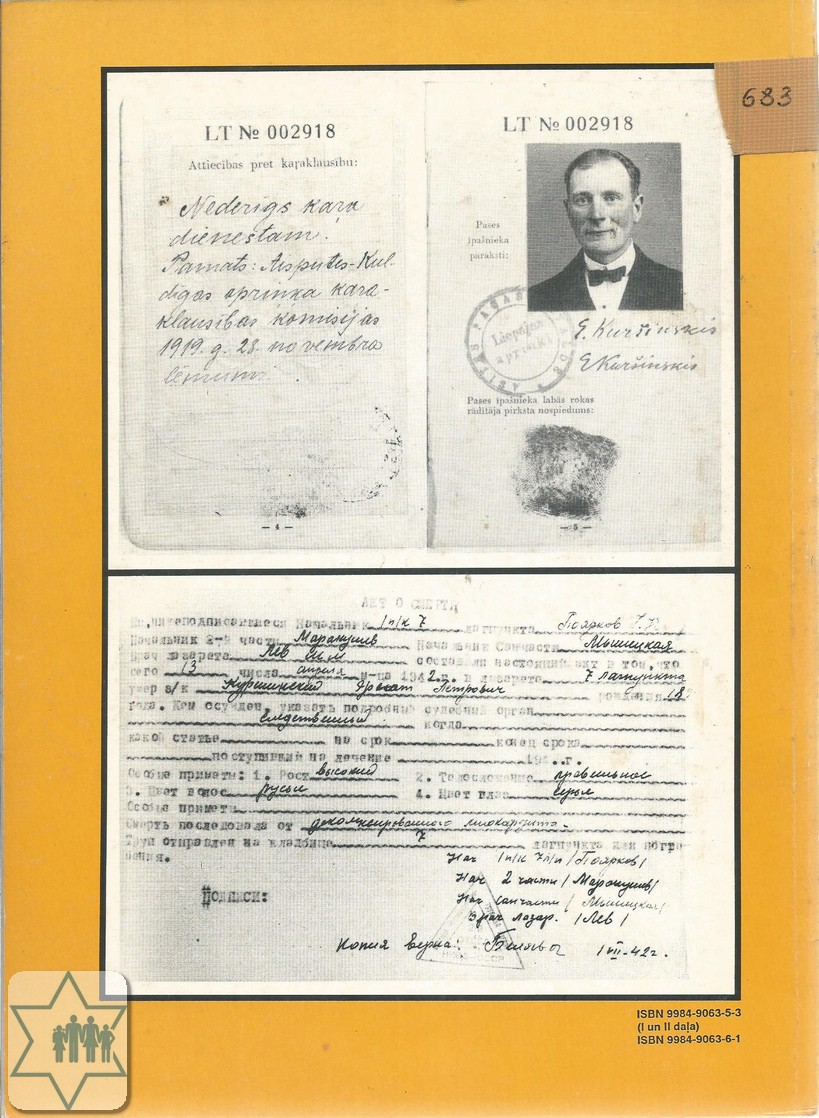 683
LT № 002918
Attiecības pret kaŗaklausību:
Nederīgs kaŗa
dienestam.
Pamats: Aizputes-Kul-
dīgas apriņķa kaŗa-
klausības komisijas
1919. g. 28. novembra
lēmums.
— 4 —
LT № 002918
Pases
īpašnieka
paraksti:
Liepājas
apriņķī
E. Kuršinskis
E Kuršinskis
Pases īpašnieka labās rokas
rādītāja pirksta nospiedums:
— 5 —
АКТ О СМЕРТИ
Мы, нижеподписавшиеся Начальник 1 п/к 7 лагпункта Поярков
Начальник 2-й части Начальник Санчасти Мышицкая
Врач лазарета Лев составили настоящий акт в том, что
сего 13 числа апреля м-ца 1942 г. в лазарете 7 лагпункта
умер з/к Куршинский Петрович рождения 18
года. Кем осужден, указать подробный судебный орган
следственный когда
какой статье на срок конец срока
поступивший на лечение 194 г.
Особые приметы: 1. Рост высокий 2. Телосложение правильное
3. Цвет волос русые 4. Цвет глаз серые
Особые приметы
Смерть последовала от декомпенсированного миокардита.
Труп отправлен на кладбище 7 лагпункта для погре-
бения.
Нач 1 п/к 7 л/п /Поярков/
Нач 2 части
Подписи:
Нач санчасти /Мышицкая/
Врач лазар. /Лев/
Копия верна: 1/VII-42 г.
ISBN 9984-9063-5-3
(I un II daļa)
ISBN 9984-9063-6-1